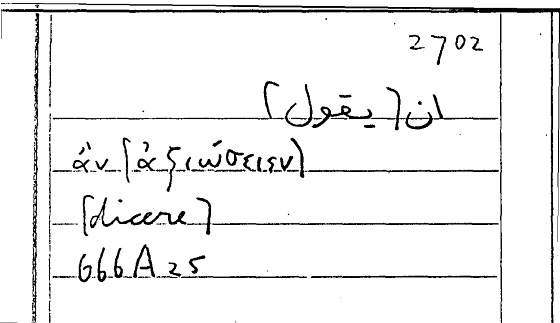 2702
ان [يقول]
ἀν [ἀξιώσειεν]
[dicere]
666A25